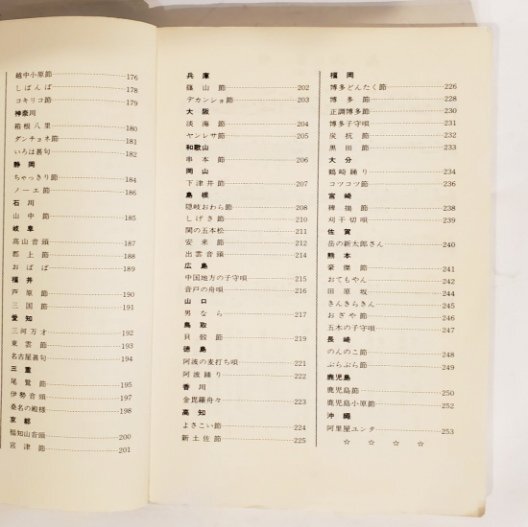 越中小原節 176
しばんば 178
コキリコ節 179
神奈川
箱根八里 180
ダンチョネ節 181
いろは甚句 182
静岡
ちゃっきり節 184
ノーエ節 186
石川
山中節 185
岐阜
高山音頭 187
郡上節 188
おばば 189
福井
芦原節 190
三国節 191
愛知
三河万才 192
東雲節 193
名古屋甚句 194
三重
尾鷲節 195
伊勢音頭 197
桑名の殿様 198
京都
福知山音頭 200
宮津節 201
兵庫
篠山節 202
デカンショ節 203
大阪
淡海節 204
ヤンレサ節 205
和歌山
串本節 206
岡山
下津井節 207
島根
隠岐おわら節 208
しげさ節 210
関の五本松 211
安来節 212
出雲音頭 214
広島
中国地方の子守唄 215
音戸の舟唄 216
山口
男なら 217
鳥取
貝殻節 219
徳島
阿波の麦打ち唄 221
阿波踊り 222
香川
金毘羅舟々 223
高知
よさこい節 224
新土佐節 225
福岡
博多どんたく節 226
博多節 228
正調博多節 230
博多子守唄 231
炭坑節 232
黒田節 233
大分
鶴崎踊り 234
コツコツ節 236
宮崎
稗搗節 238
刈干切唄 239
佐賀
岳の新太郎さん 240
熊本
豪傑節 241
おてもやん 242
田原坂 244
きんきらきん 245
おざや節 246
五木の子守唄 247
長崎
のんのこ節 248
ぶらぶら節 249
鹿児島
鹿児島節 250
鹿児島小原節 252
沖縄
阿里屋ユンタ 253
☆ ☆ ☆ ☆